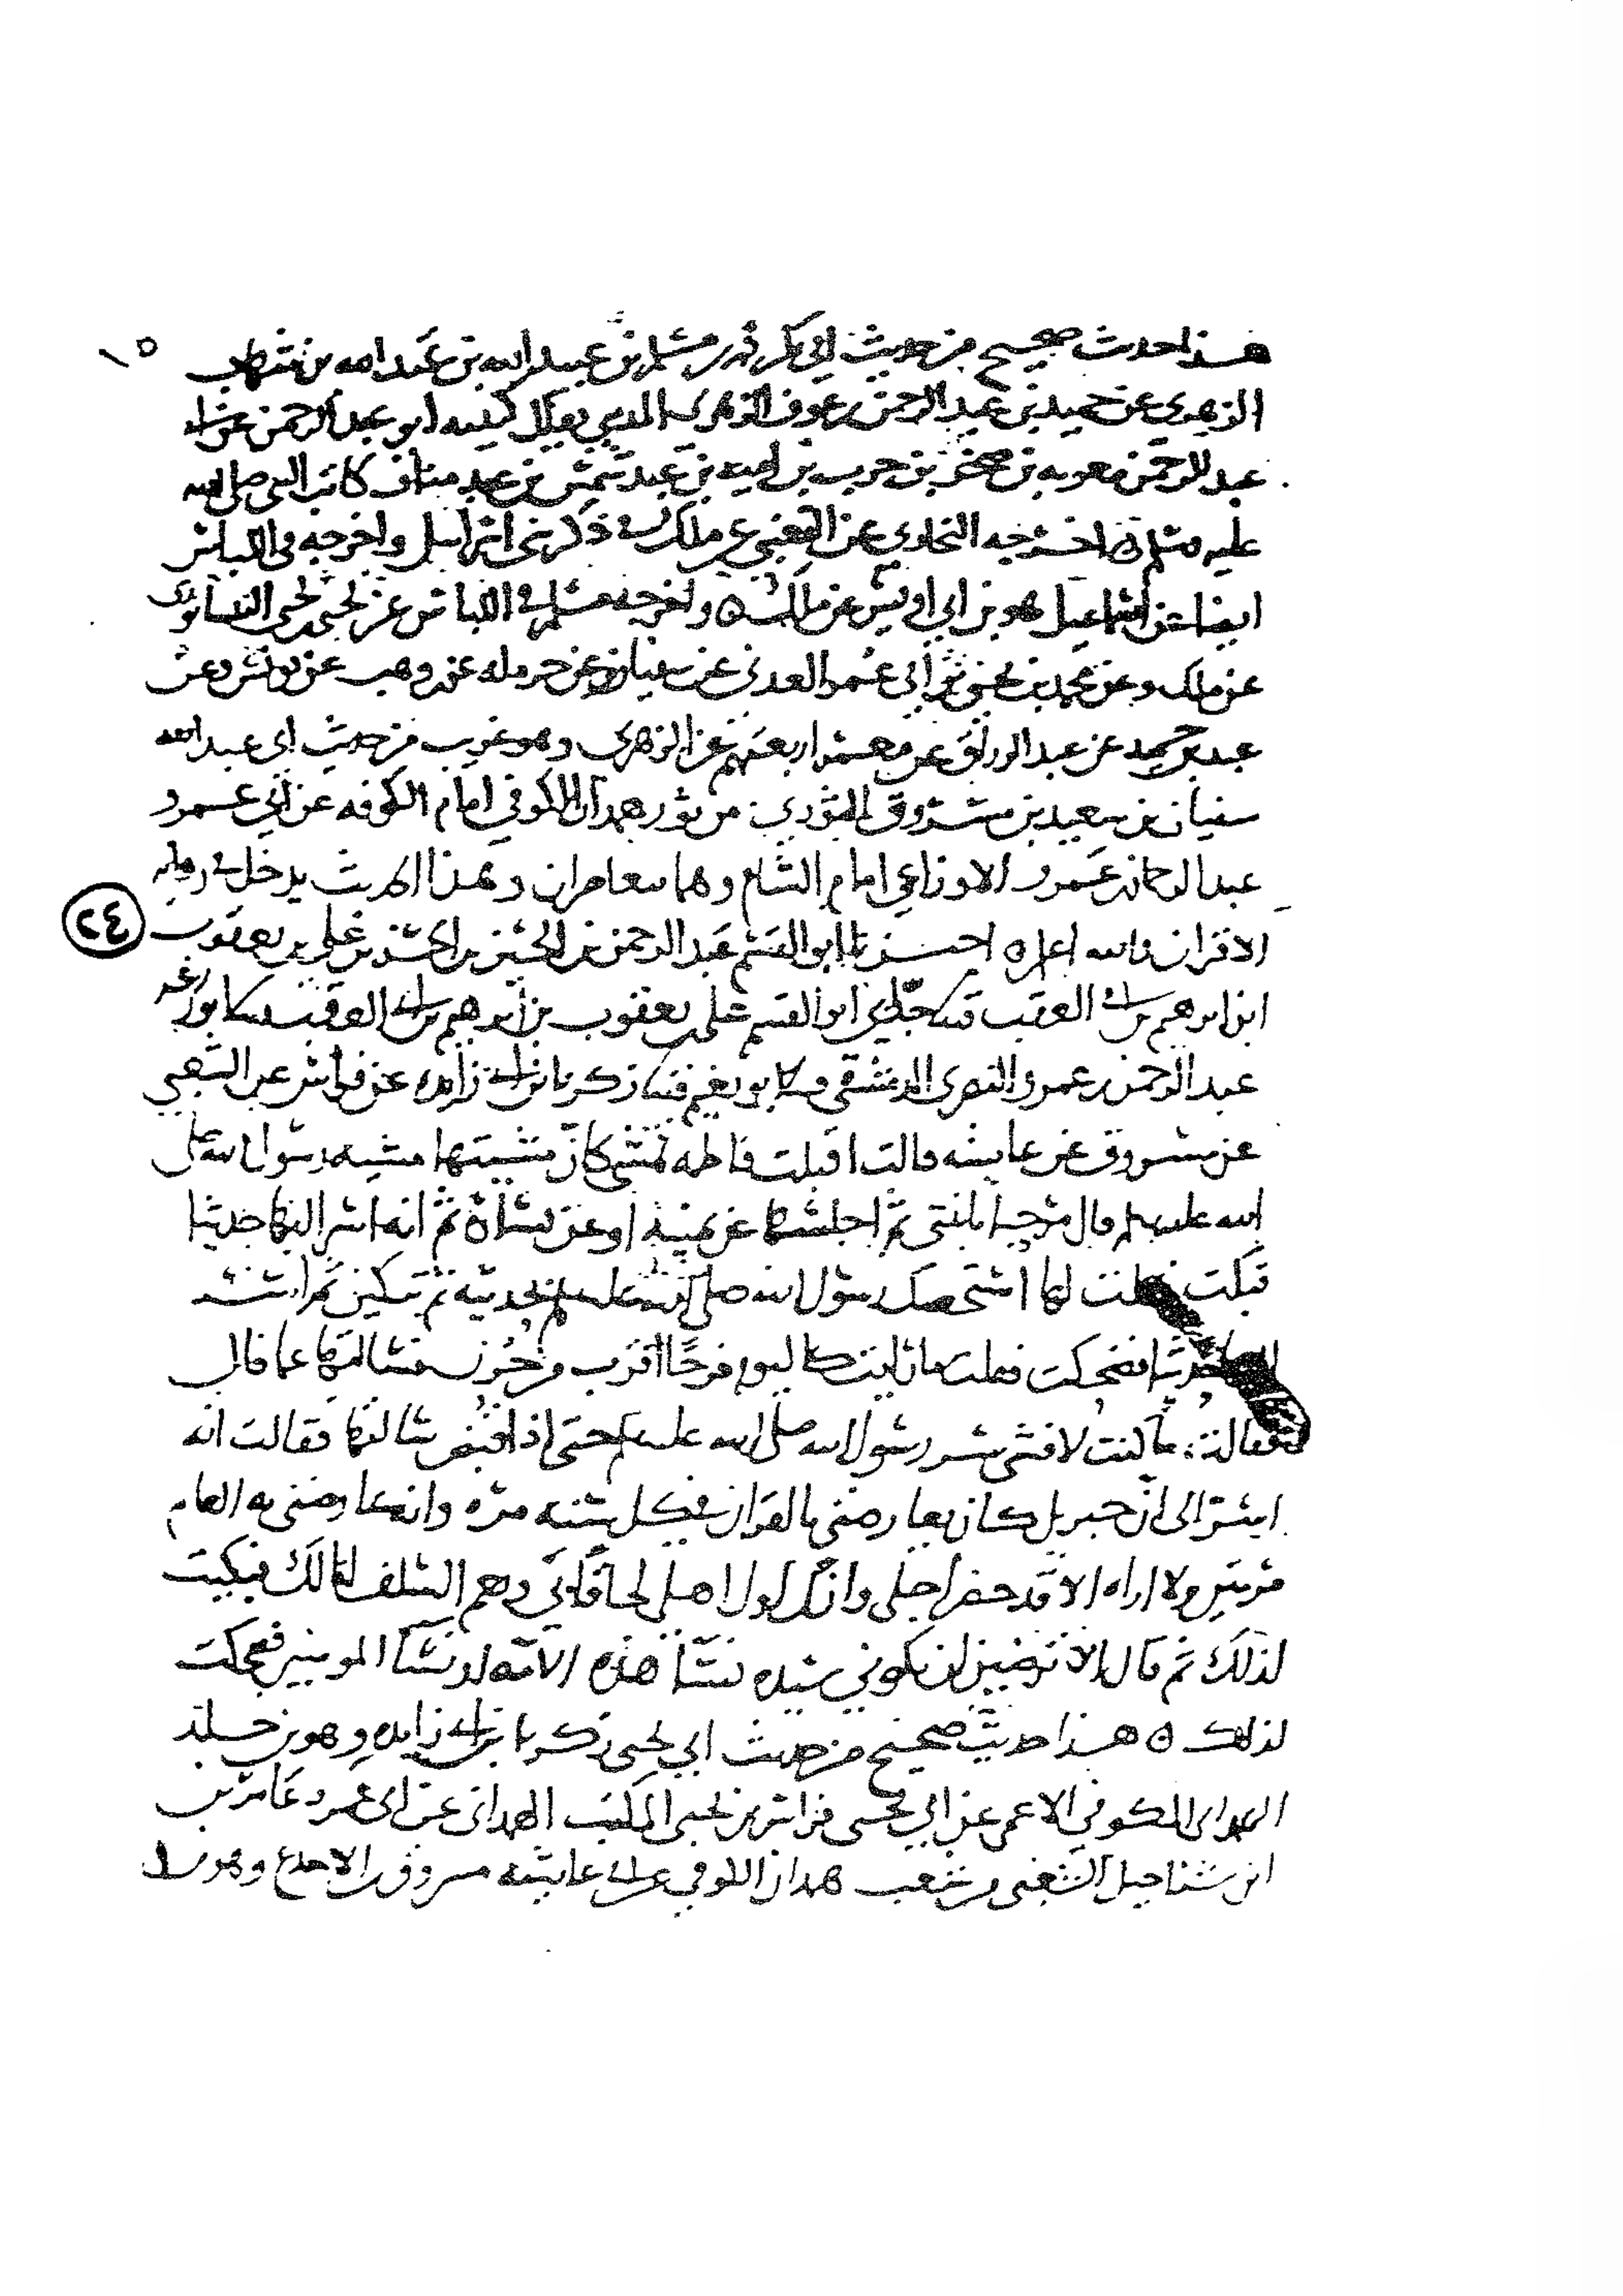 ١٥
هذا حديث صحيح من حديث ابي بكر محمد بن مسلم بن عبيد الله بن عبد الله بن شهاب
الزهري عن حميد بن عبد الرحمن بن عوف الزهري المدني يقال كنيته ابو عبد الرحمن عن ابي
عبد الرحمن معويه بن صخر بن حرب بن اميه بن عبد شمس بن عبد مناف كاتب النبي صلى الله
عليه وسلم اخرجه البخاري عن القعنبي عن ملك في ذكر بني اسرائيل واخرجه في اللباس
ايضا عن اسماعيل هو بن ابي اويس عن ملك ه واخرجه مسلم في اللباس عن يحيى بن يحيى النيسابوري
عن ملك وعن محمد بن يحيى بن ابي عمر العدني عن سفيان وعن حرمله عن بن وهب عن يونس وعن
عبد بن حميد عن عبد الرزاق عن معمر اربعتهم عن الزهري وهو غريب من حديث ابي عبد الله
سفيان بن سعيد بن مسروق الثوري من ثور همدان الكوفي امام الكوفه عن ابي عمرو
عبد الرحمان بن عمرو الاوزاعي امام الشام وهما متعاصران وهذا الحديث يدخل في روايه
الاقران والله اعلم ه اخبرنا ابو القسم عبد الرحمن بن الحسين بن الحسن بن علي بن يعقوب
٢٤
ابن ابرهيم بن ابي العقب حدثني جدي ابو القسم علي بن يعقوب بن ابرهيم بن ابي العقب ابو زرعه
عبد الرحمن بن عمرو النصري الدمشقي ابو نعيم زكريا بن ابي زايده عن فراس عن الشعبي
عن مسروق عن عايشه قالت اقبلت فاطمه تمشي كان مشيتها مشيه رسول الله صلى
الله عليه وسلم قال مرحبا بابنتي ثم اجلسها عن يمينه او عن يساره ثم انه اسر اليها حديثا
فبكت فقلت لها استخصك رسول الله صلى الله عليه وسلم بحديثه ثم تبكين ثم اسر
اليها حديثا فضحكت فقلت ما رايت كاليوم فرحا اقرب من حزن فسالتها عما قال
فقالت ما كنت لافشي سر رسول الله صلى الله عليه وسلم حتى اذا قبض سالتها فقالت انه
اسر الى ان جبريل كان يعارضني بالقران في كل سنه مره وانه عارضني به العام
مرتين ولا اراه الا قد حضر اجلي وانك اول اهلي لحاقا بي ونعم السلف انا لك فبكيت
لذلك ثم قال الا ترضين ان تكوني سيده نسا هذه الامه او نسا المومنين فضحكت
لذلك ه هذا حديث صحيح من حديث ابي يحيى زكريا بن ابي زايده وهو بن خالد
الهمداني الكوفي الاعمى عن ابي يحيى فراس بن يحيى المكتب الهمداني عن ابي عمرو عامر بن
ابن شراحيل الشعبي من شعب همدان الكوفي عن ابي عايشه مسروق بن الاجدع وهو